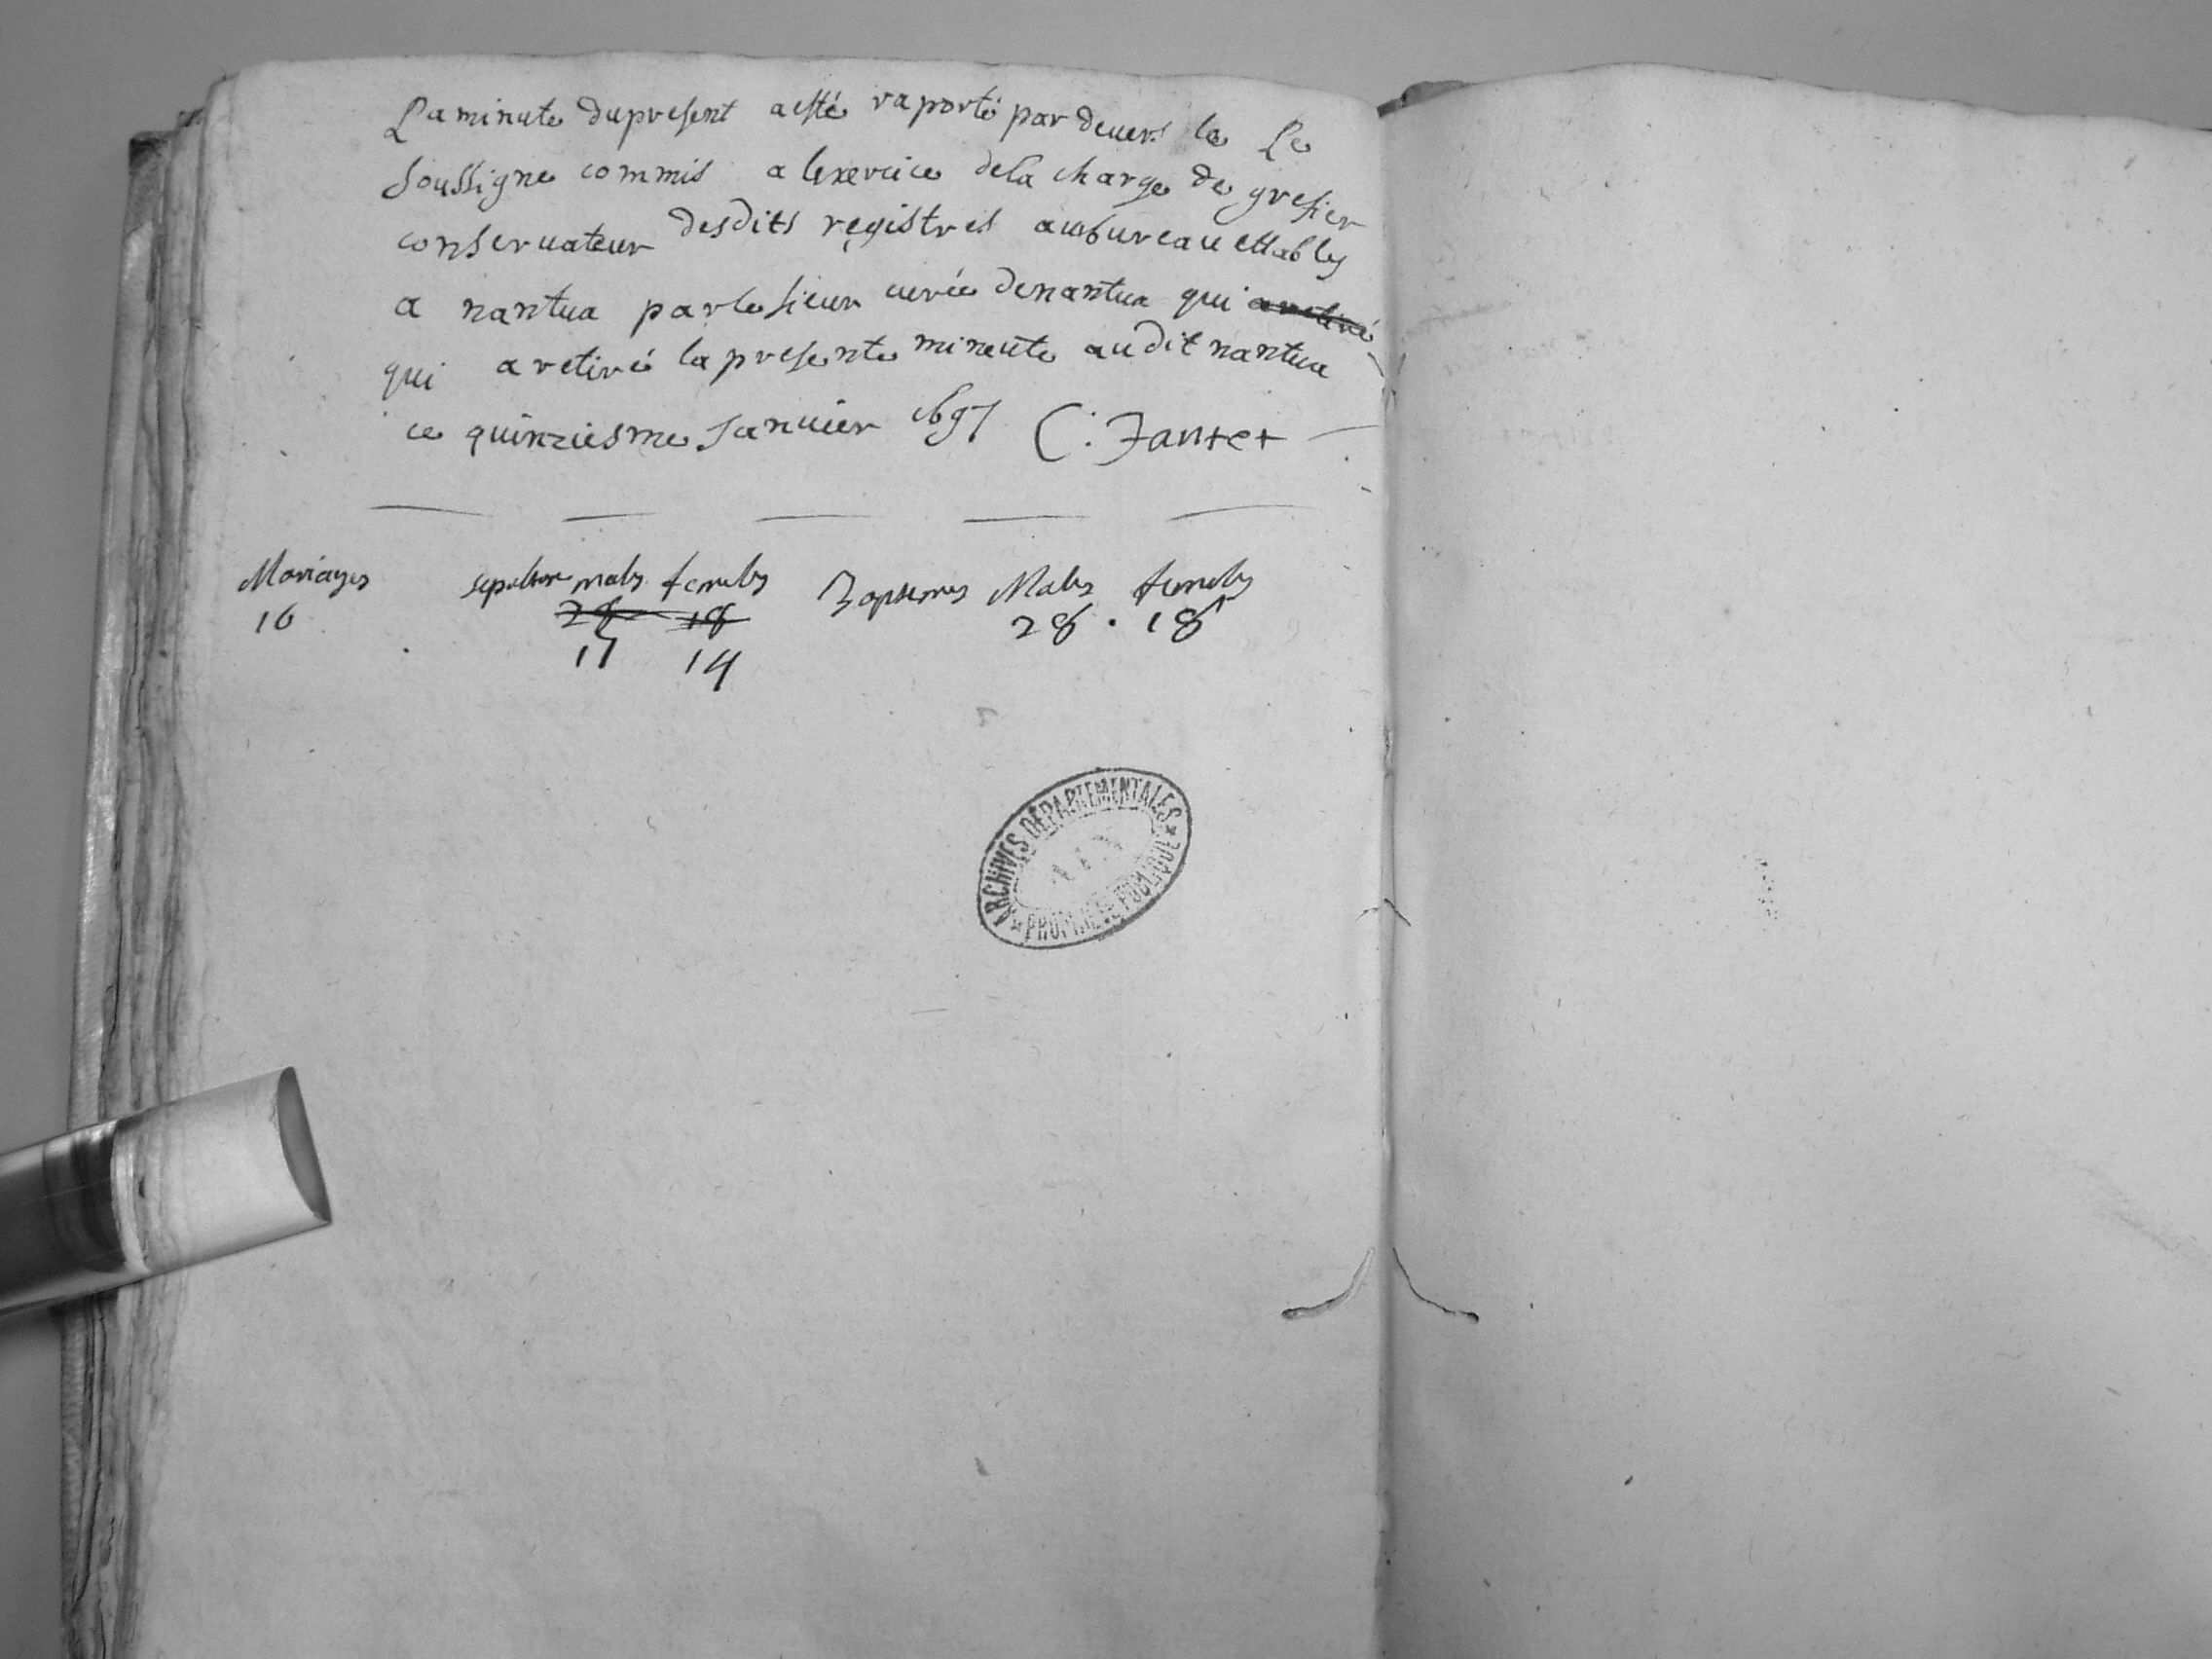 La minute du present a esté raporté par devers le Le
soussigne commis a lexercice dela charge de grefier
conservateur desdits registres au bureau estably
a nantua par le sieur curée de nantua qui a retiré
qui a retiré la presente minute audit nantua
ce quinziesme Januier 1697 C. Jantet
Mariages sepulture males femeles Baptemes Males femeles
16 28 18 28 . 18
17 14
ARCHIVES DÉPARTEMENTALES
AIN
PROPRIÉTÉ PUBLIQUE